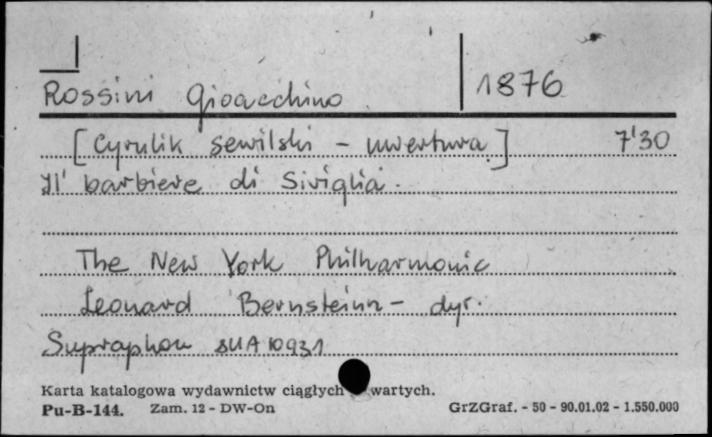 Rossini Gioacchino 1876
[Cyrulik sewilski - uwertura] 7'30
Il' barbiere di Siviglia.
The New York Philharmonic
Leonard Bernsteinn - dyr.
Supraphon SUA 10931
Karta katalogowa wydawnictw ciągłych wartych.
Pu-B-144. Zam. 12 - DW-On GrZGraf. - 50 - 90.01.02 - 1.550.000